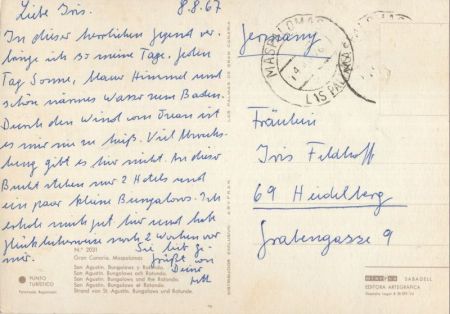 Liebe Iris.
8.8.67
In dieser herrlichen Gegend ver-
bringe ich so meine Tage. Jeden
Tag Sonne, blauer Himmel und
schön warmes Wasser zum Baden.
Durch den Wind vom Juan ist
es mir nie zu heiß. Viel Abwechs-
lung gibt es hier nicht. In dieser
Bucht stehen nur 2 Hotels und
ein paar kleine Bungalows. Ich
erhole mich gut hier und hab
glücklicherweise noch 2 Wochen vor
mir.
Sei lieb ge-
grüßt von
Deiner
N.º 2031
Gran Canaria. Maspalomas
San Agustín. Bungalows y Rotonda.
San Agustin. Bungalows och Rotonda.
San Agustin. Bungalows and the Rotunda.
San Agustin. Bungalows et Rotonde.
Strand von St. Agustin. Bungalows und Rotunde.
PUNTO
TURISTICO
MASPALOMAS
LAS PALMAS
Germany
Fräulein
Iris Feldhoff
69 Heidelberg
Grabengasse 9
SABADELL
EDITORA ARTEGRAFICA